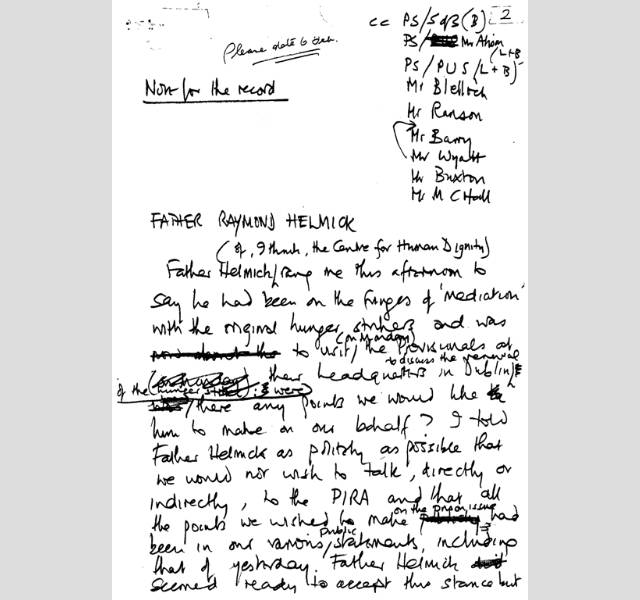 cc PS/S of S (B) 2
Please
PS/ Mr
(L+B)
PS/PUS (L+B)
Note for the record
Mr Blelloch
Mr Ranson
Mr Barry
Mr Wyatt
Mr Buxton
Mr
FATHER RAYMOND HELMICK
(of, I think, the Centre for Human Dignity)
Father Helmick rang me this afternoon to
say he had been on the fringes of 'mediation'
with the original hunger strikers and was
(on Monday)
to visit the Provisionals at
to discuss the renewal
their headquarters in Dublin
of the hunger strike: were
there any points we would like
him to make on our behalf? I told
Father Helmick as politely as possible that
we would not wish to talk, directly or
indirectly, to the PIRA and that all
on the prison issue
the points we wished to make had
public
been in our various statements, including
that of yesterday. Father Helmick
seemed ready to accept this stance but